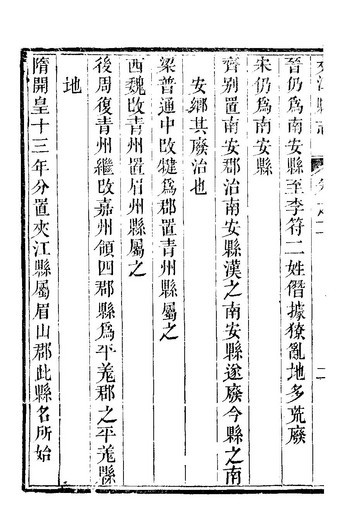 晉仍爲南安縣至李符二姓僭據獠亂地多荒廢
宋仍爲南安縣
齊别置南安郡治南安縣漢之南安縣遂廢今縣之南
安鄉其廢治也
梁普通中改犍爲郡置青州縣屬之
西魏改青州置眉州縣屬之
後周復青州繼改嘉州領四郡縣爲平羌郡之平羌縣
地
隋開皇十三年分置夾江縣屬眉山郡此縣名所始